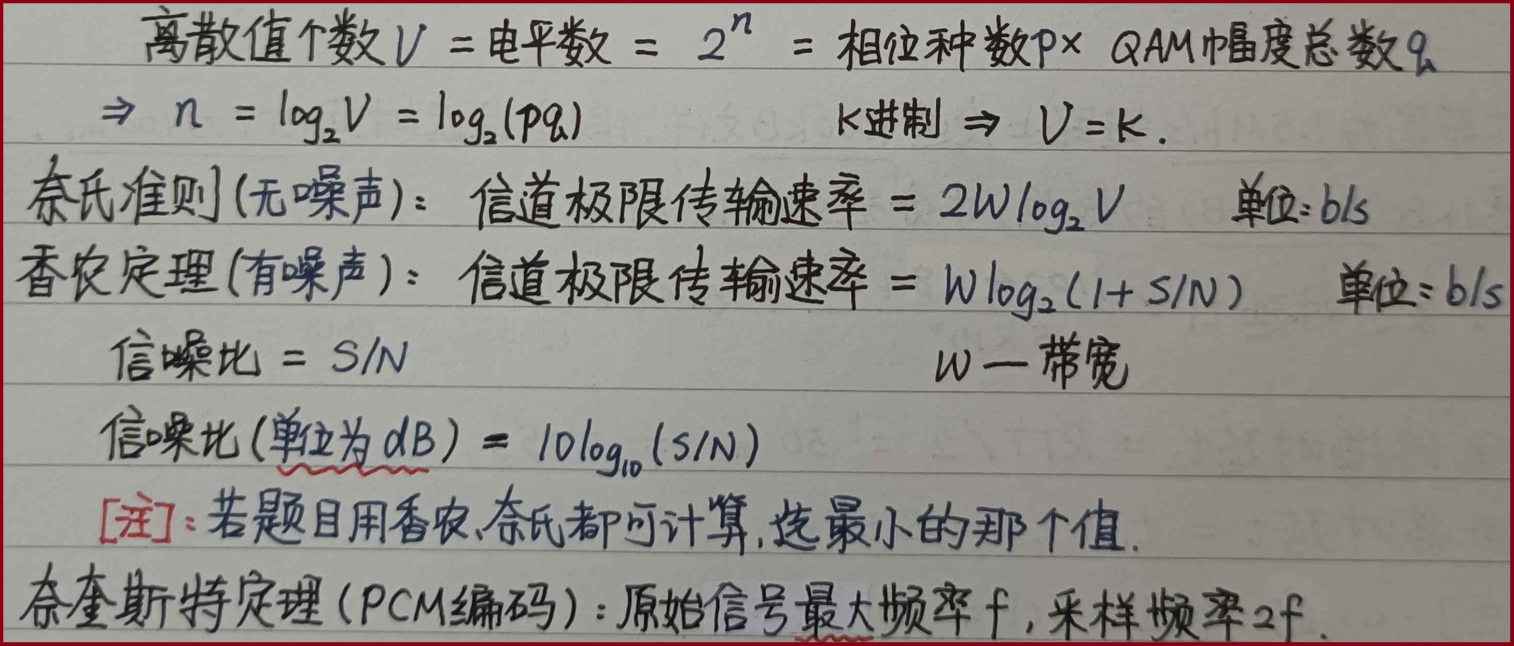 离散值个数V = 电平数 = 2^n = 相位种数p× QAM幅度总数q
⇒ n = log₂V = log₂(pq) K进制 ⇒ V=K.
奈氏准则(无噪声): 信道极限传输速率 = 2Wlog₂V 单位:b/s
香农定理(有噪声): 信道极限传输速率 = Wlog₂(1+S/N) 单位:b/s
信噪比 = S/N W—带宽
信噪比(单位为dB) = 10log₁₀(S/N)
[注]:若题目用香农、奈氏都可计算,选最小的那个值.
奈奎斯特定理(PCM编码):原始信号最大频率f,采样频率2f.